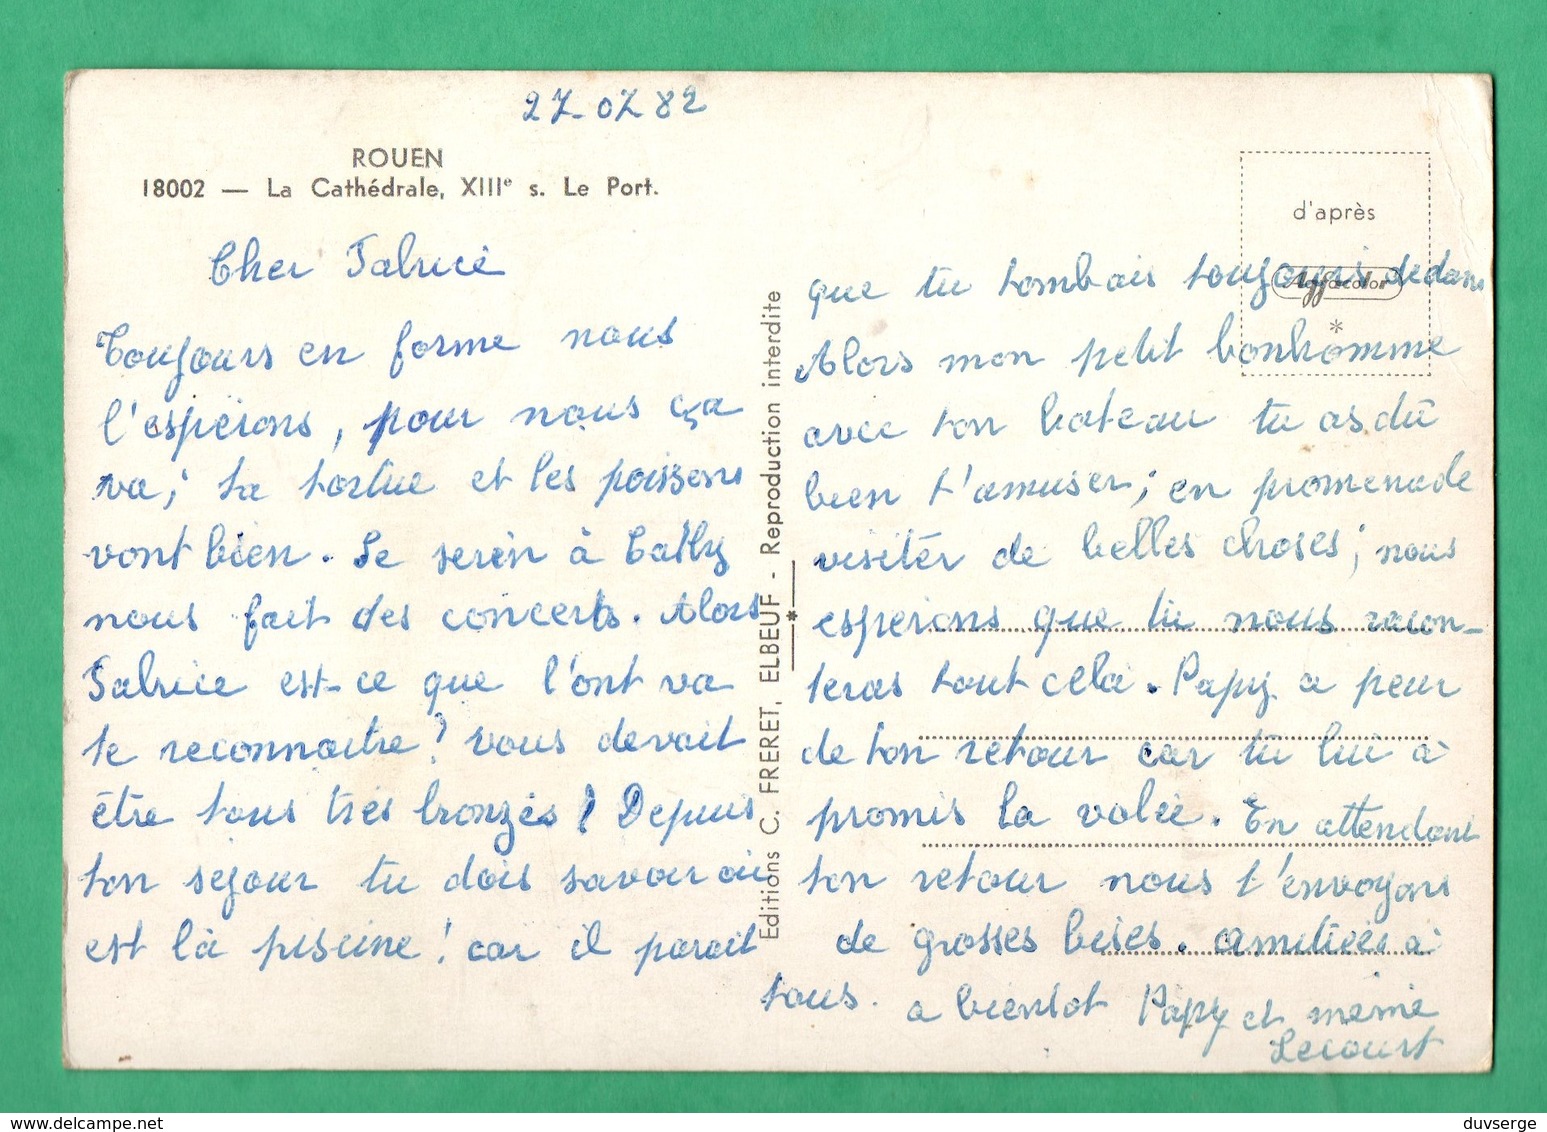 27-07 82
ROUEN
18002 — La Cathédrale, XIIIe s. Le Port.
Cher Fabrice
Toujours en forme nous
l'espérons, pour nous ça
va; ta tortue et les poissons
vont bien. Le serin à Cathy
nous fait des concerts. Alors
Fabrice est-ce que l'ont va
te reconnaitre? vous devait
être tous très bronzés! Depuis
ton séjour tu dois savoir où
est là piscine! car il parait
Editions C. FRERET, ELBEUF - Reproduction interdite
d'après
Agfacolor
*
que tu tombais toujours dedans
Alors mon petit bonhomme
avec ton bateau tu as dû
bien t'amuser; en promenade
visiter de belles choses; nous
espérons que tu nous racon-
teras tout celà. Papy a peur
de ton retour car tu lui à
promis la volée. En attendant
ton retour nous t'envoyons
de grosses bises. amitiées à
tous. a bientot Papy et mémé
Lecourt
duvserge